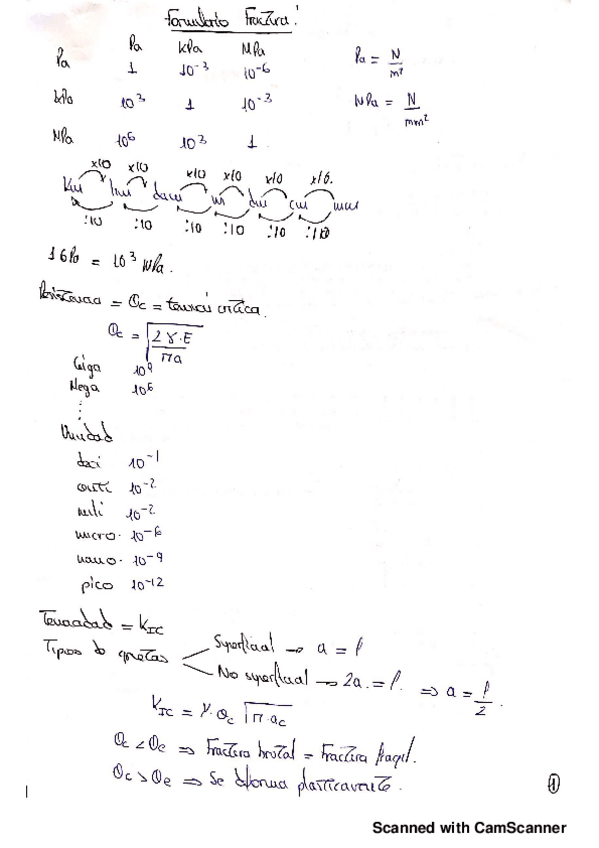 Formulario Fractura:
Pa kPa MPa
Pa 1 10⁻³ 10⁻⁶ Pa = N/m²
kPa 10³ 1 10⁻³ MPa = N/mm²
MPa 10⁶ 10³ 1
x10 x10 x10 x10 x10 x10.
Km hm dam m dm cm mm
:10 :10 :10 :10 :10 :10
1 GPa = 10³ MPa.
Resistencia = σc = tensión crítica.
σc = √(2γ·E/πa)
Giga 10⁹
Mega 10⁶
⋮
Unidad
deci 10⁻¹
centi 10⁻²
mili 10⁻²
micro. 10⁻⁶
nano. 10⁻⁹
pico 10⁻¹²
Tenacidad = K_IC
Tipos de grietas
Superficial → a = l
No superficial → 2a. = l. ⇒ a = l/2.
K_IC = Y·σc √(π·ac)
σc < σe ⇒ Fractura brutal = Fractura frágil.
σc > σe ⇒ Se deforma plásticamente.
1
Scanned with CamScanner